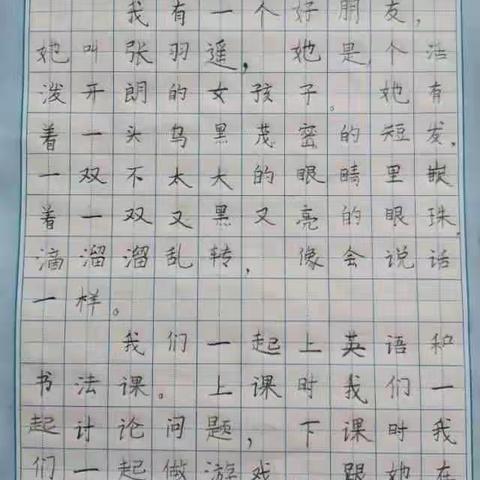 我有一个好朋友,
她叫张羽遥,她是个活
泼开朗的女孩子。她有
着一头乌黑茂密的短发,
一双不太大的眼睛里嵌
着一双又黑又亮的眼珠,
滴溜溜乱转,像会说话
一样。
我们一起上英语和
书法课。上课时我们一
起讨论问题,下课时我
们一起做游戏 跟她在